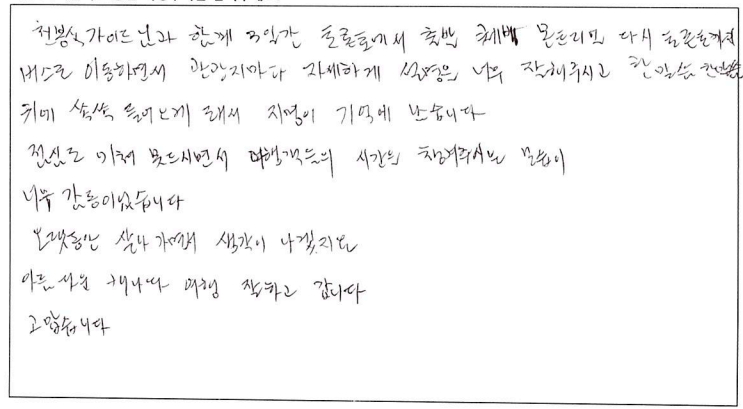 천봉식 가이드님과 함께 3일간 토론토에서 출발 퀘백 몬트리얼 다시 토론토까지
버스로 이동하면서 관광지마다 자세하게 설명을 너무 잘해주시고 한말씀 한말씀
귀에 쏙쏙 들어오게 해서 지명이 기억에 남습니다
점심도 미처 못드시면서 여행객들의 시간을 챙겨주시는 모습이
너무 감동이었습니다
오랫동안 살아가면서 생각이 나겠지요
아름다운 캐나다 여행 잘하고 갑니다
고맙습니다